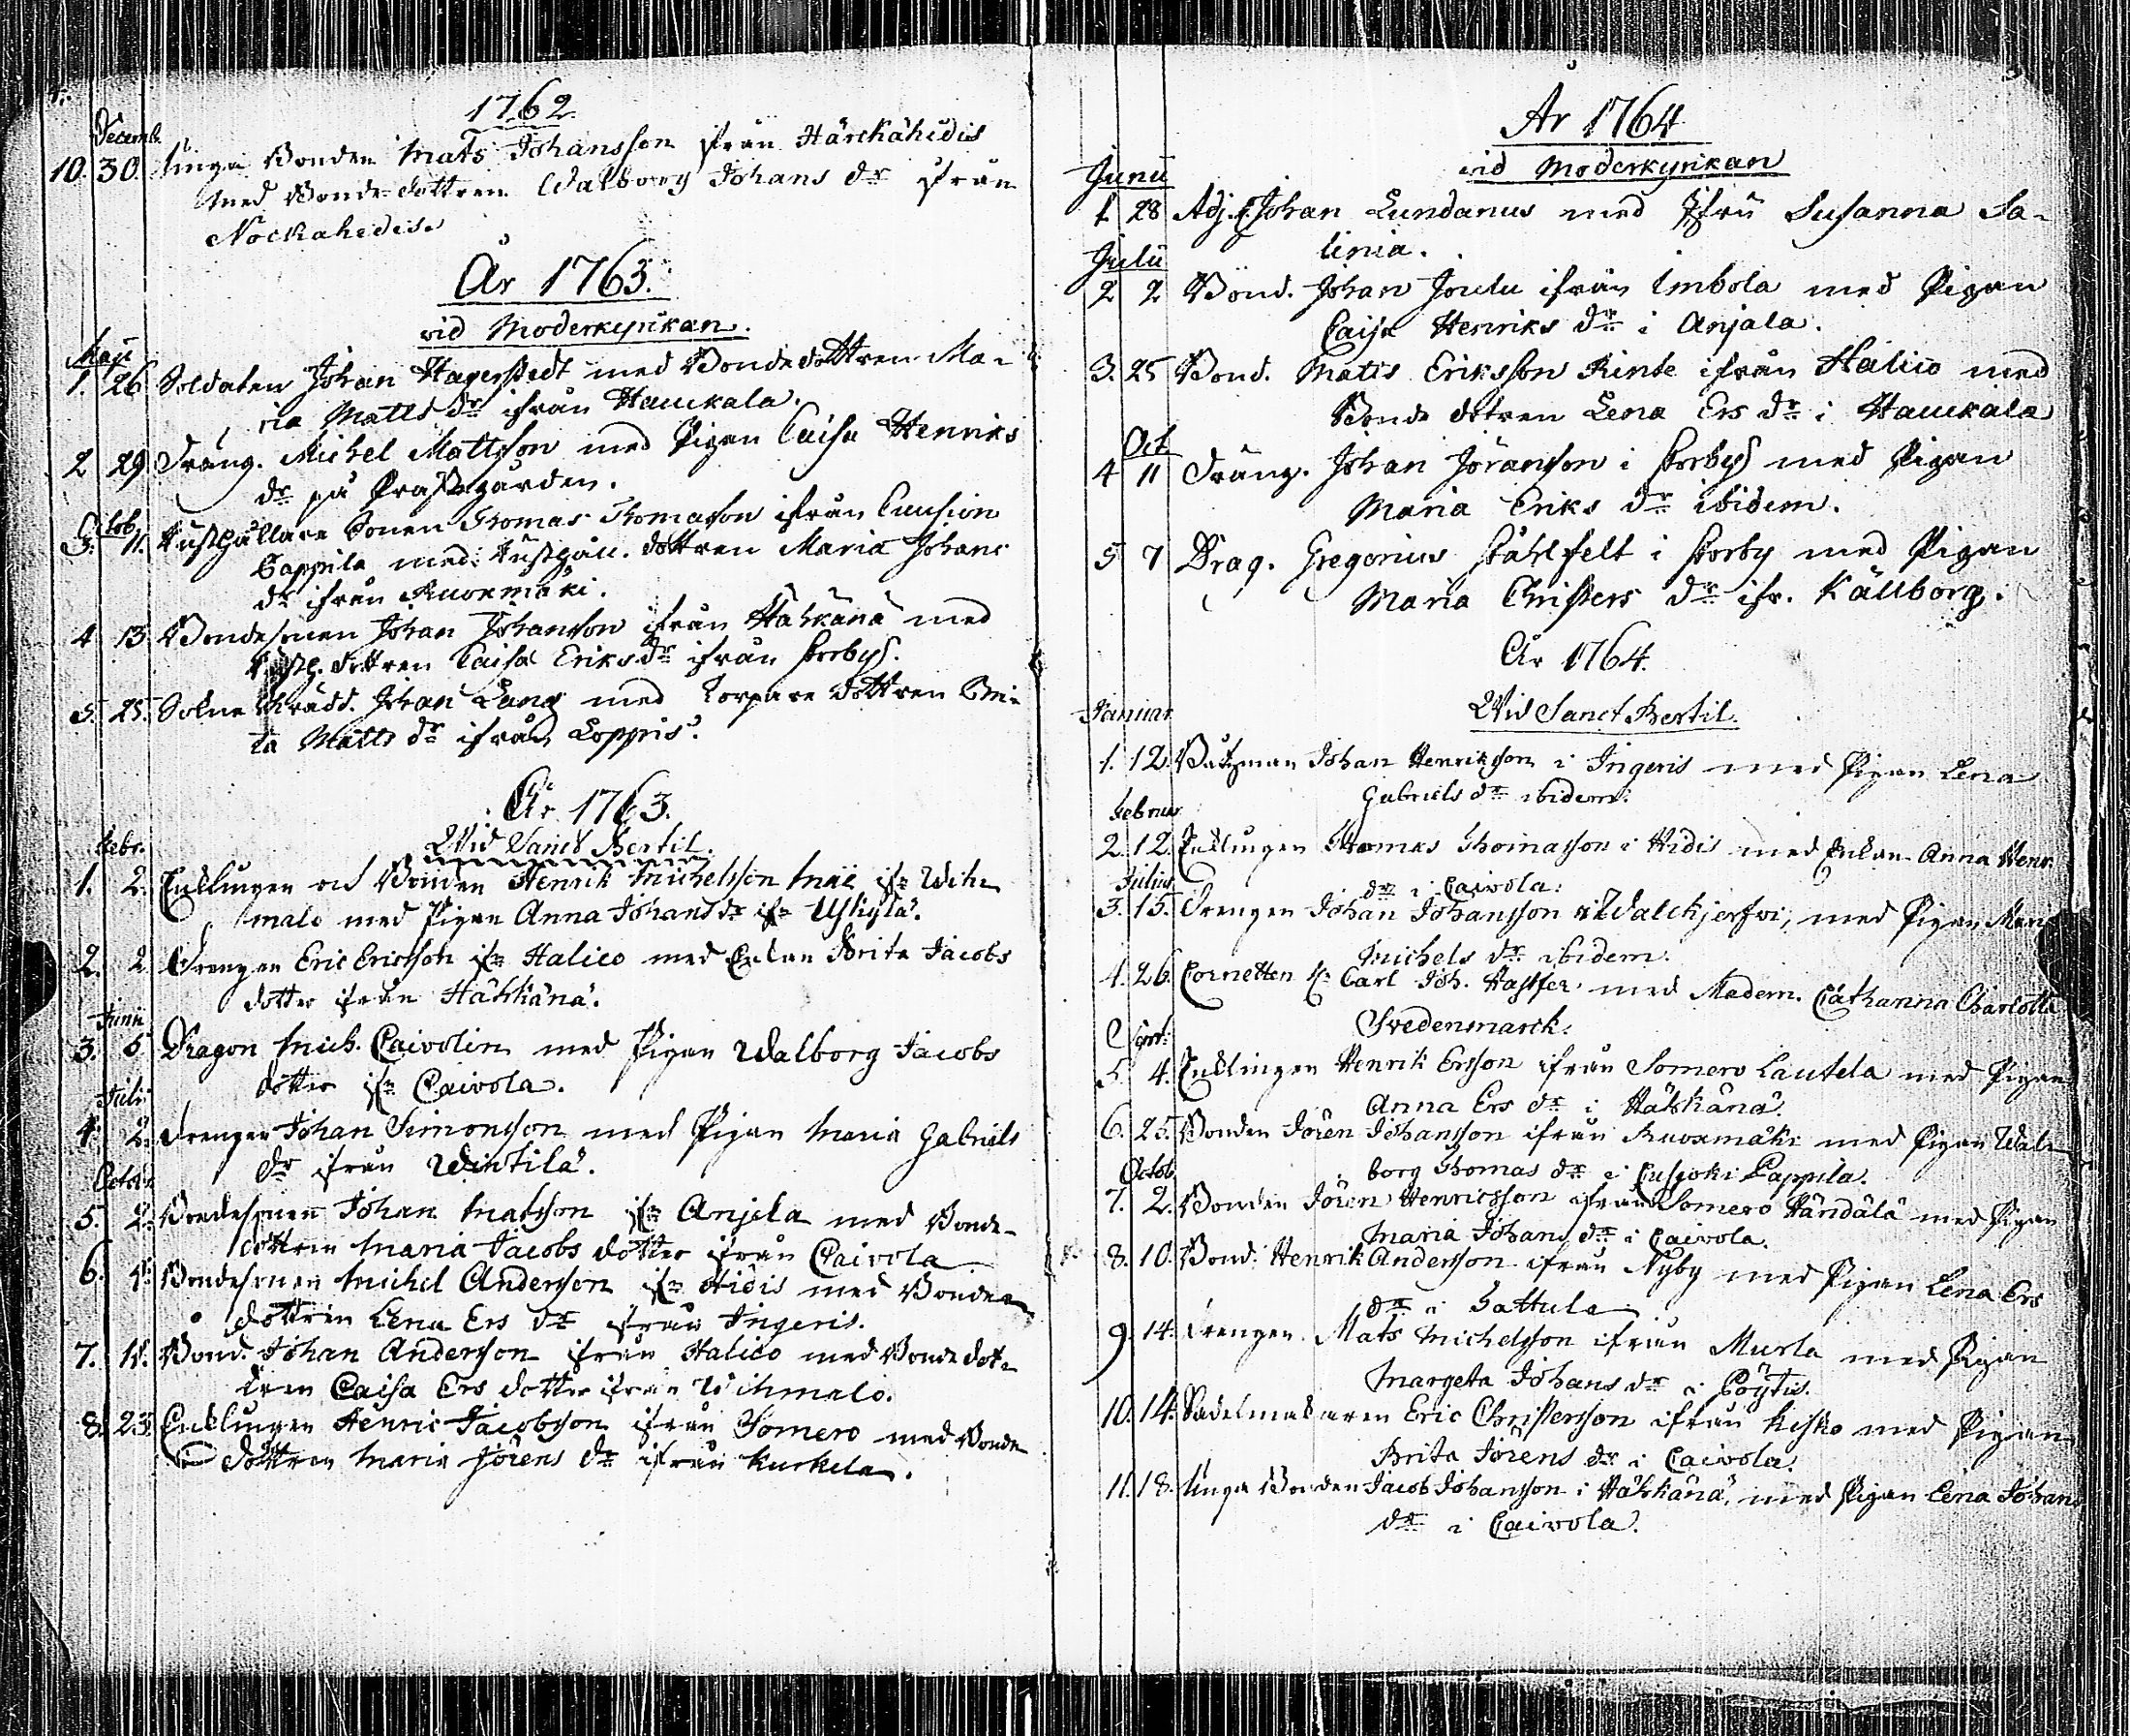 1762.
Decemb.
10. 30. Unga Bonden Mats Johansson ifrån Härckähidis
med Bonde dottren Walborg Johans dr ifrån
Nockahedis.
År 1763.
vid Moderkyrkan.
Maji
1. 26 Soldaten Johan Hagerstedt med Bondedottren Ma-
ria Matts dr ifrån Haukala.
2 29 Dräng. Michel Mattsson med Pigan Caisa Henriks
dr på Prästgården.
Octob.
3. 11. Husthållare Sonen Thomas Thomasson ifrån Cuusion
Pappila med Husthåll. dottren Maria Johans
dr ifrån Ruoxmäki.
4 13 Bondesonen Johan Johansson ifrån Häkänä med
dottren Caisa Eriks dr ifrån Storby.
5. 25. Sokne Skrädd. Johan Lang med Torpare dottren Bri-
ta Matts dr ifrån Loppis.
År 1763.
Wid Sanct Bertil.
Febr.
1. 2. Encklingen och Bonden Henrik Michelsson ifr.
malo med Pigan Anna Johans dr ifr Uskylä.
2. 2 Drengen Eric Ericsson ifr Halico med Enkan Brita Jacobs
dotter ifrån Häkkänä.
Junii
3. 5 Dragon Mich. Caivolin med Pigan Walborg Jacobs
dotter ifr Caivola.
Julii
4. 2. Drengen Johan Simonsson med Pigan Maria Gabriels
dr ifrån Wintilä.
Octob.
5. 2. Bondesonen Johan Matsson ifr Anjela med Bonde-
dottren Maria Jacobs dotter ifrån Caivola
6. Bondesonen Michel Andersson ifr Hidis med Bonde
dottren Lena Ers dr ifrån Ingeris.
7. Bond. Johan Andersson ifrån Halico med Bonde dot-
tren Caisa Ers dotter ifrån Wihmalo.
8. 23. Encklingen Henric Jacobsson ifrån Somero med Bonde
dottren Maria Jörens dr ifrån Kurkela.
År 1764
vid Moderkyrkan
Junii
1. 28 Adj. Johan Lundanus med Jfru Susanna Sa-
linia.
Julii
2 2 Bond. Johan Joulu ifrån Imbola med Pigan
Caisa Henriks dr i Anjala.
3. 25 Bond. Matts Eriksson Rinte ifrån Halico med
Bonde dottren Lena Ers dr i Haukala
Oct.
4 11 Dräng. Johan Jöransson i Storby med Pigan
Maria Eriks dr ibidem.
5 7 Drag. Gregorius Stählfelt i Storby med Pigan
Maria Christers dr ifr. Källborg.
År 1764.
Wid Sanct Bertil.
Januar.
1. 12. Båtzman Johan Henriksson i Ingeris med Pigan Lena
Gabriels dr ibidem.
Februar.
2. 12. Encklingen Thomas Thomasson i Hidis med Enkan Anna Henr.
dr i Caivola.
Julius
3. 15. Drengen Johan Johansson i Walckjerfwi, med Pigan Mar.
Michels dr ibidem.
4. 26. Cornetten Hr Carl Joh. Hastfer med Madem. Catharina Charlotta
Svedenmarck.
Sept.
5. 4. Encklingen Henrik Ersson ifrån Somero Lautela med Pigan
Anna Ers dr i Häkkänä.
6. 25. Bonden Jören Johansson ifrån Ruoxmäki med Pigan Wal-
borg Thomas dr i Cusjoki Pappila.
Octob.
7. 2. Bonden Jören Henricsson ifrån Somero Händälä med Pigan
Maria Johans dr i Caivola.
8. 10. Bond. Henrik Andersson ifrån Nyby med Pigan Lena Ers
dr i Sattula
9. 14. Drengen Mats Michelsson ifrån Murla med Pigan
Margeta Johans dr i Pöytis.
10. 14. Sadelmakaren Eric Christersson ifrån Kisko med Pigan
Brita Jörens dr i Caivola.
11. 18. Unga Bonden Jacob Johansson i Häkkänä, med Pigan Lena Johans
dr i Caivola.